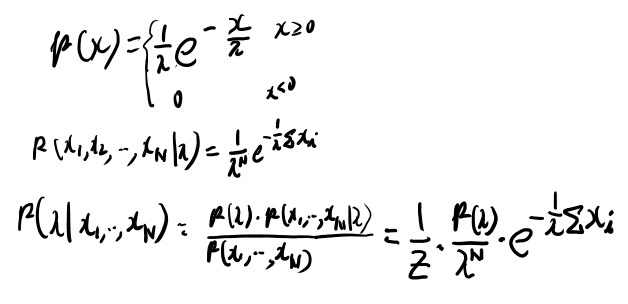 p(x) = { 1/λ e^{-x/λ} x≥0
0 x<0
P(x₁,x₂,..,x_N|λ) = 1/λ^N e^{-1/λ Σx_i}
P(λ|x₁,..,x_N) = P(λ)·P(x₁,..,x_N|λ) / P(x₁,..,x_N) = 1/Z · P(λ)/λ^N · e^{-1/λ Σx_i}